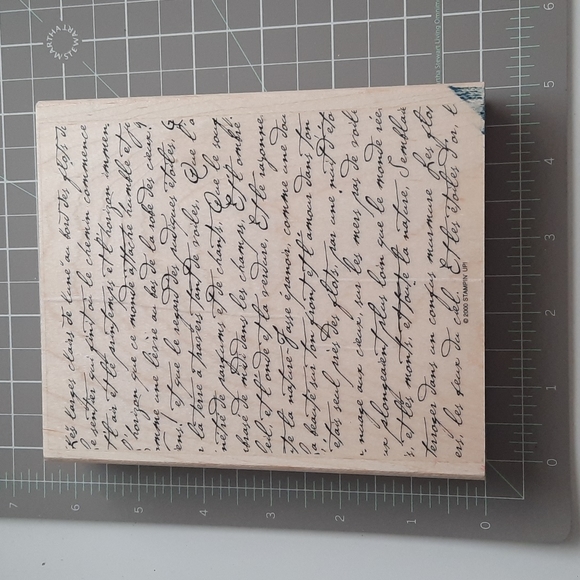 Les larges clairs de lune au bord des flots d
e sentier qui finit où le chemin commence
t l'air et le printemps et l'horizon immen
l'horizon que ce monde attache humble et
mme une lèvre au bas de la robe des cieux!
ens! et que le regard des pudiques étoiles, Q
la terre à travers tant de voiles, Que l'a
nétré de parfums et de chants, Que le souf
chase de midi, dans les champs, Et l'ombre
leil, et l'onde et la verdure, Et le rayonne
te la nature Fasse épanouir, comme une dou
a beauté sur ton front et l'amour dans ton
étais seul près des flots, par une nuit d'éto
nuage aux cieux, sur les mers pas de voile
ux plongeaient plus loin que le monde rée
s, et les monts, et toute la nature, Semblai
terroger dans un confus murmure Les flo
ers, les feux du ciel. Et les étoiles d'or, l
© 2000 STAMPIN' UP!
MARTHA STEWART
Martha Stewart Living Omnim
0 1 2 3 4 5 6
7 6 5 4 3 2 1 0